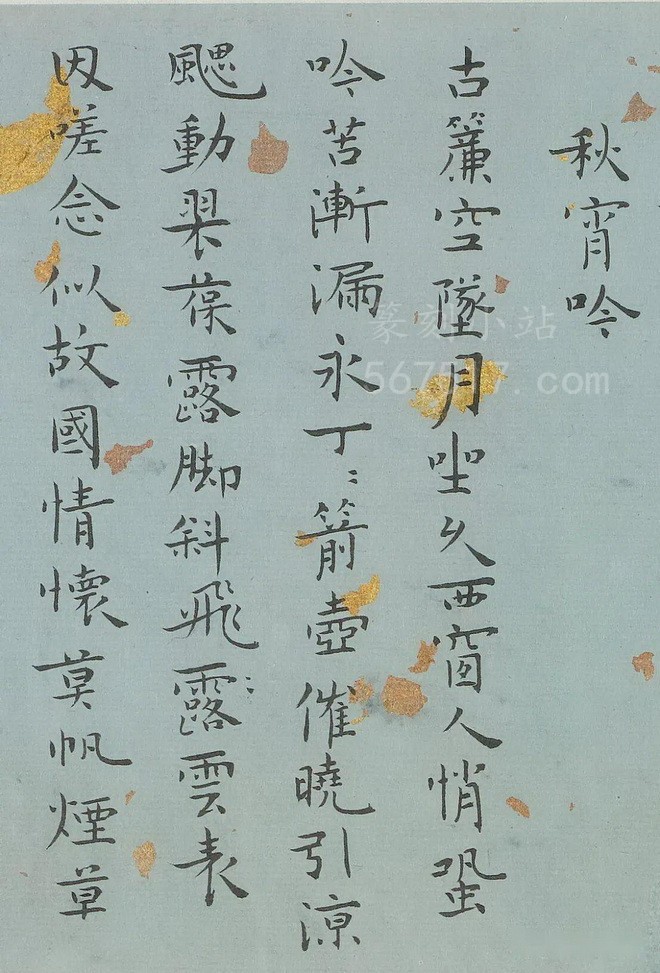 秋宵吟
古簾空墜月坐久西窗人悄蛩
吟苦漸漏永丁〻箭壺催曉引涼
颸動翠葆露脚斜飛露雲表
因嗟念似故國情懷莫帆煙草
篆刻小站